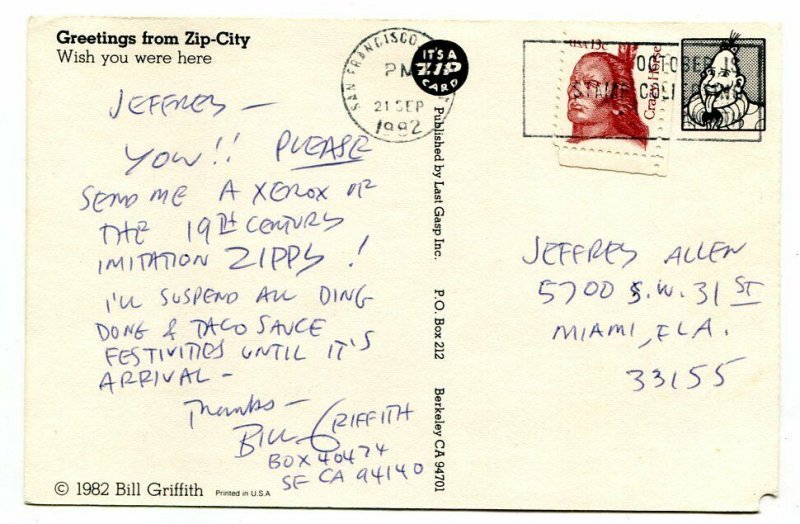 Greetings from Zip-City
Wish you were here
JEFFREY —
YOW!! PLEASE
SEND ME A XEROX OF
THE 19TH CENTURY
IMITATION ZIPPY!
I'LL SUSPEND ALL DING
DONG & TACO SAUCE
FESTIVITIES UNTIL IT'S
ARRIVAL –
Thanks –
BILL GRIFFITH
BOX 40474
SF CA 94140
© 1982 Bill Griffith
Printed in U.S.A
SAN FRANCISCO
PM
21 SEP
1982
IT'S A
ZIP
CARD
Published by Last Gasp Inc. P.O. Box 212 Berkeley CA 94701
USA 13c
Crazy Horse
OCTOBER IS
STAMP
JEFFREY ALLEN
5700 S.W. 31 ST
MIAMI, FLA.
33155